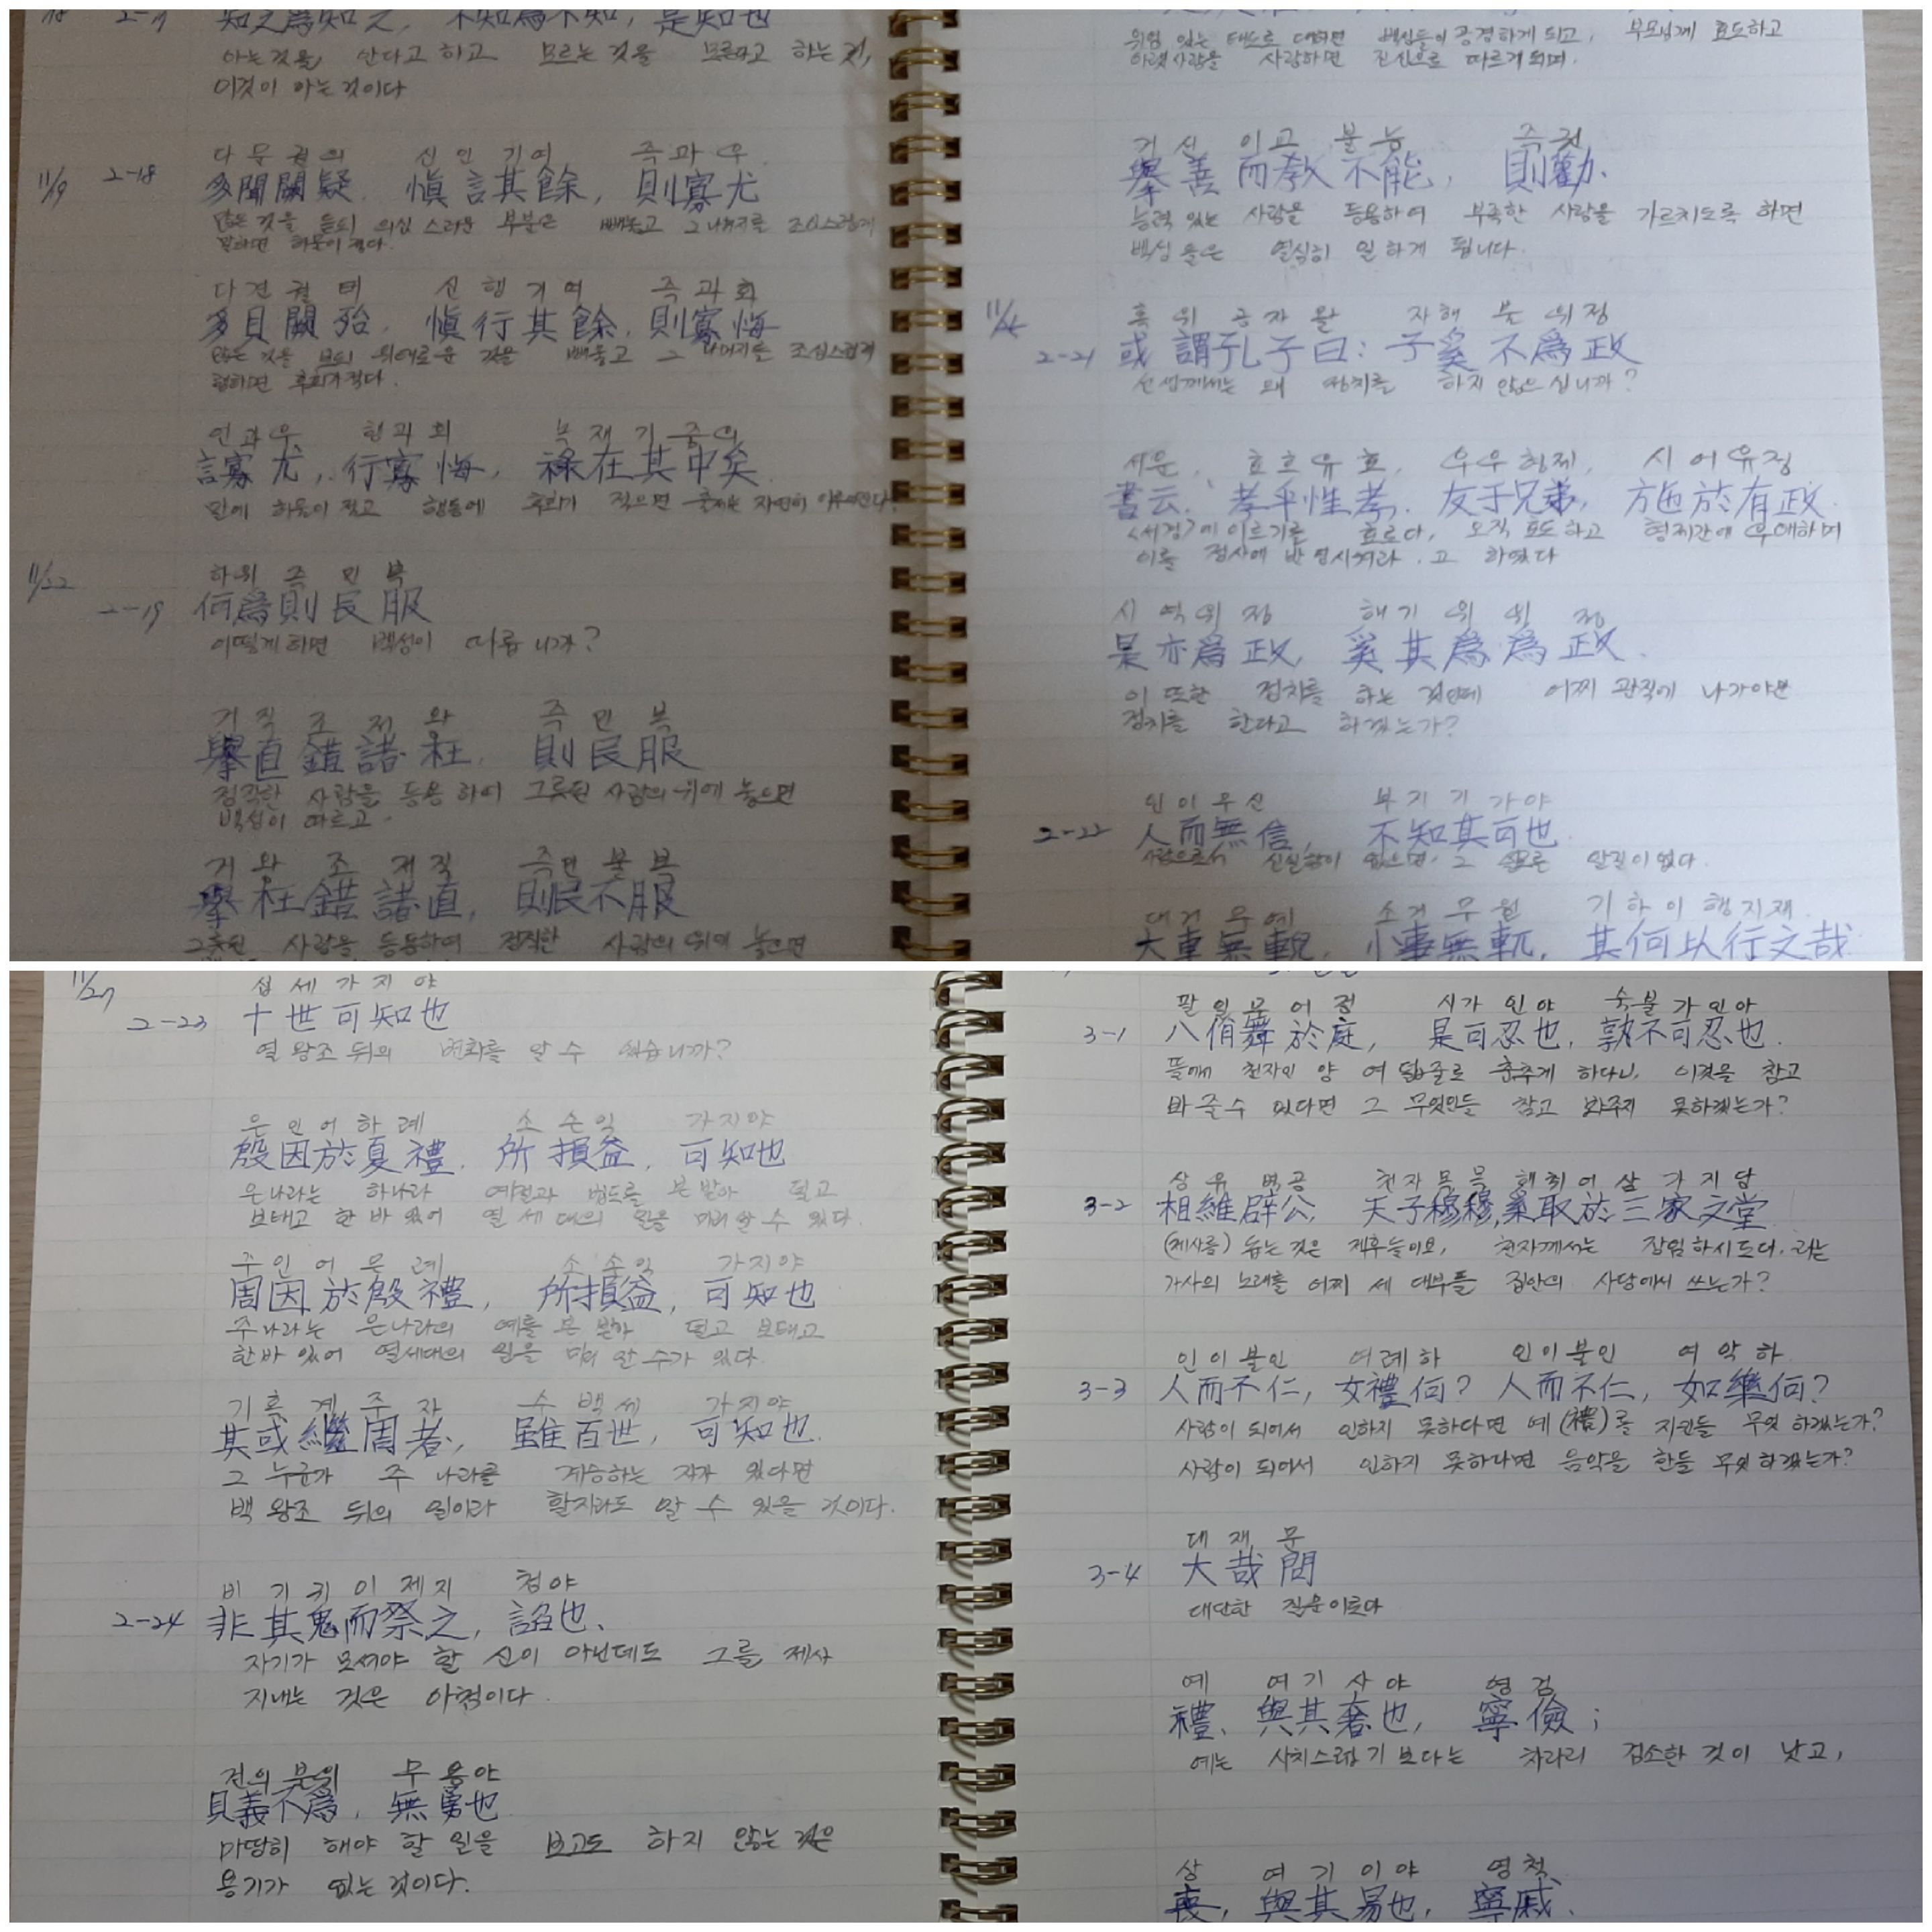 2-17 知之爲知之, 不知爲不知, 是知也
아는것을, 안다고 하고 모르는 것을 모른다고 하는 것,
이것이 아는 것이다
다문궐의 신언기여 즉과우
11/9 2-18 多聞闕疑. 愼言其餘, 則寡尤
많은 것을 듣되 의심 스러운 부분은 빼놓고 그 나머지를 조심스럽게
말하면 허물이 적다.
다견궐태 신행기여 즉과회
多見闕殆. 愼行其餘. 則寡悔
많은 것을 보되 위태로운 것을 빼놓고 그 나머지를 조심스럽게
행하면 후회가 적다.
언과우 행과회 녹재기중의
言寡尤, 行寡悔, 祿在其中矣
말에 허물이 적고 행동에 후회가 적으면 출세는 자연히 이루어진다.
11/22 하위즉민복
2-19 何爲則民服
어떻게 하면 백성이 따릅니까?
거직조저왕 즉민복
擧直錯諸枉, 則民服
정직한 사람을 등용하여 그릇된 사람의 위에 놓으면
백성이 따르고.
거왕조저직 즉민불복
擧枉錯諸直, 則民不服
그릇된 사람을 등용하여 정직한 사람의 위에 놓으면
위엄 있는 태도로 대하면 백성들이 공경하게 되고, 부모님께 효도하고
아랫사람을 사랑하면 진심으로 따르게 되며.
거선이교불능 즉권
擧善而敎不能, 則勸.
능력 있는 사람을 등용하여 부족한 사람을 가르치도록 하면
백성들은 열심히 일하게 됩니다.
11/24 혹위공자왈 자해불위정
2-21 或謂孔子曰: 子奚不爲政
선생께서는 왜 정치를 하지 않으십니까?
서운, 효호유효, 우우형제, 시어유정
書云, 孝乎惟孝. 友于兄弟, 施於有政.
<서경>에 이르기를 효로다, 오직 효도하고 형제간에 우애하며
이를 정사에 반영시켜라. 고 하였다
시역위정 해기위위정
是亦爲政, 奚其爲爲政.
이 또한 정치를 하는 것인데 어찌 관직에 나가야만
정치를 한다고 하겠는가?
인이무신 부지기가야
2-22 人而無信, 不知其可也.
사람으로서 신실함이 없으면, 그 쓸모를 알길이 없다.
대거무예 소거무월 기하이행지재
大車無輗, 小車無軏, 其何以行之哉
11/27 십세가지야
2-23 十世可知也
열 왕조 뒤의 변화를 알 수 있습니까?
은인어하례 소손익 가지야
殷因於夏禮. 所損益, 可知也
은나라는 하나라 예절과 법도를 본받아 덜고
보태고 한 바 있어 열 세대의 일을 미리 알 수 있다.
주인어은례 소손익 가지야
周因於殷禮, 所損益, 可知也
주나라는 은나라의 예를 본받아 덜고 보태고
한바 있어 열세대의 일을 미리 알 수가 있다.
기혹계주자 수백세 가지야
其或繼周者, 雖百世, 可知也.
그 누군가 주 나라를 계승하는 자가 있다면
백 왕조 뒤의 일이라 할지라도 알 수 있을 것이다.
비기귀이제지 첨야
2-24 非其鬼而祭之, 諂也.
자기가 모셔야 할 신이 아닌데도 그를 제사
지내는 것은 아첨이다.
견의불위 무용야
見義不爲, 無勇也
마땅히 해야 할 일을 보고도 하지 않는 것은
용기가 없는 것이다.
팔일무어정 시가인야 숙불가인야
3-1 八佾舞於庭, 是可忍也, 孰不可忍也.
뜰에 천자인 양 여덟줄로 춤추게 하다니, 이것을 참고
봐 줄 수 있다면 그 무엇인들 참고 봐주지 못하겠는가?
상유벽공 천자목목 해취어삼가지당
3-2 相維辟公, 天子穆穆, 奚取於三家之堂
(제사를) 돕는 것은 제후들이요, 천자께서는 장엄하시도다. 라는
가사의 노래를 어찌 세 대부들 집안의 사당에서 쓰는가?
인이불인 여례하 인이불인 여악하
3-3 人而不仁, 女禮何? 人而不仁, 如樂何?
사람이 되어서 인하지 못하다면 예(禮)를 지킨들 무엇 하겠는가?
사람이 되어서 인하지 못하다면 음악을 한들 무엇 하겠는가?
대재문
3-4 大哉問
대단한 질문이로다
예 여기사야 영검
禮, 與其奢也, 寧儉;
예는 사치스럽기 보다는 차라리 검소한 것이 낫고,
상 여기이야 영척
喪, 與其易也, 寧戚.